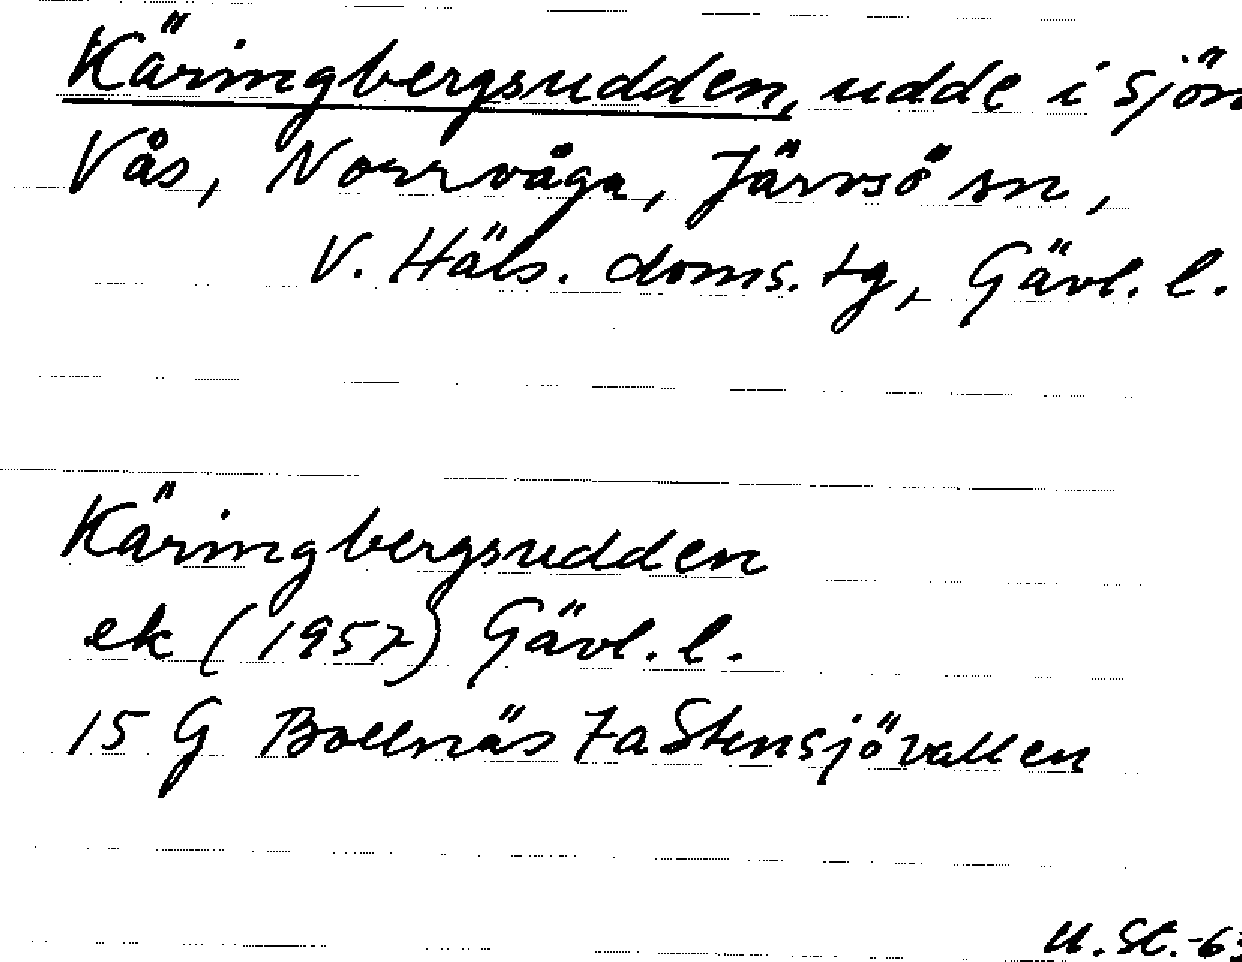 Käringbergsudden, udde i sjön
Vås, Norrvåga, Järvsö sn,
V. Häls. doms. tg, Gävl. l.
Käringbergsudden
ek (1957) Gävl. l.
15 G Bollnäs 7a Stensjövallen
U. St. -63